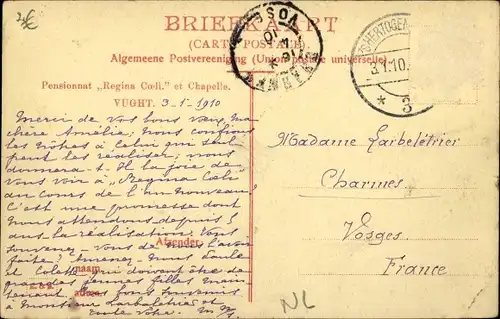 BRIEFKAART
(CARTE POSTALE)
Algemeene Postvereeniging (Union postale universelle).
Pensionnat „Regina Cœli,” et Chapelle.
VUGHT. 3-1-1910
'S HERTOGEN
3.1.10.
* 3
VOSGES
Merci de vos bons vœux, ma
chère Amélie; nous confions
les nôtres à Celui qui seul
peut les réaliser; nous
donnera-t-Il la joie de
vous voir à „Regina Cœli”
au cours de l'an nouveau?
C'est une promesse dont
nous attendons depuis
la réalisation. Vous
souvenez-vous de l'avoir
faite? Amenez-nous Paule
et Colette qui doivent être de
grandes jeunes filles main-
tenant. Mes bons souvenirs
à Monsieur Larbalétrier et
toute vôtre. M. M.
Afzender:
naam
adres
Madame Larbalétrier
Charmes
Vosges
France
NL